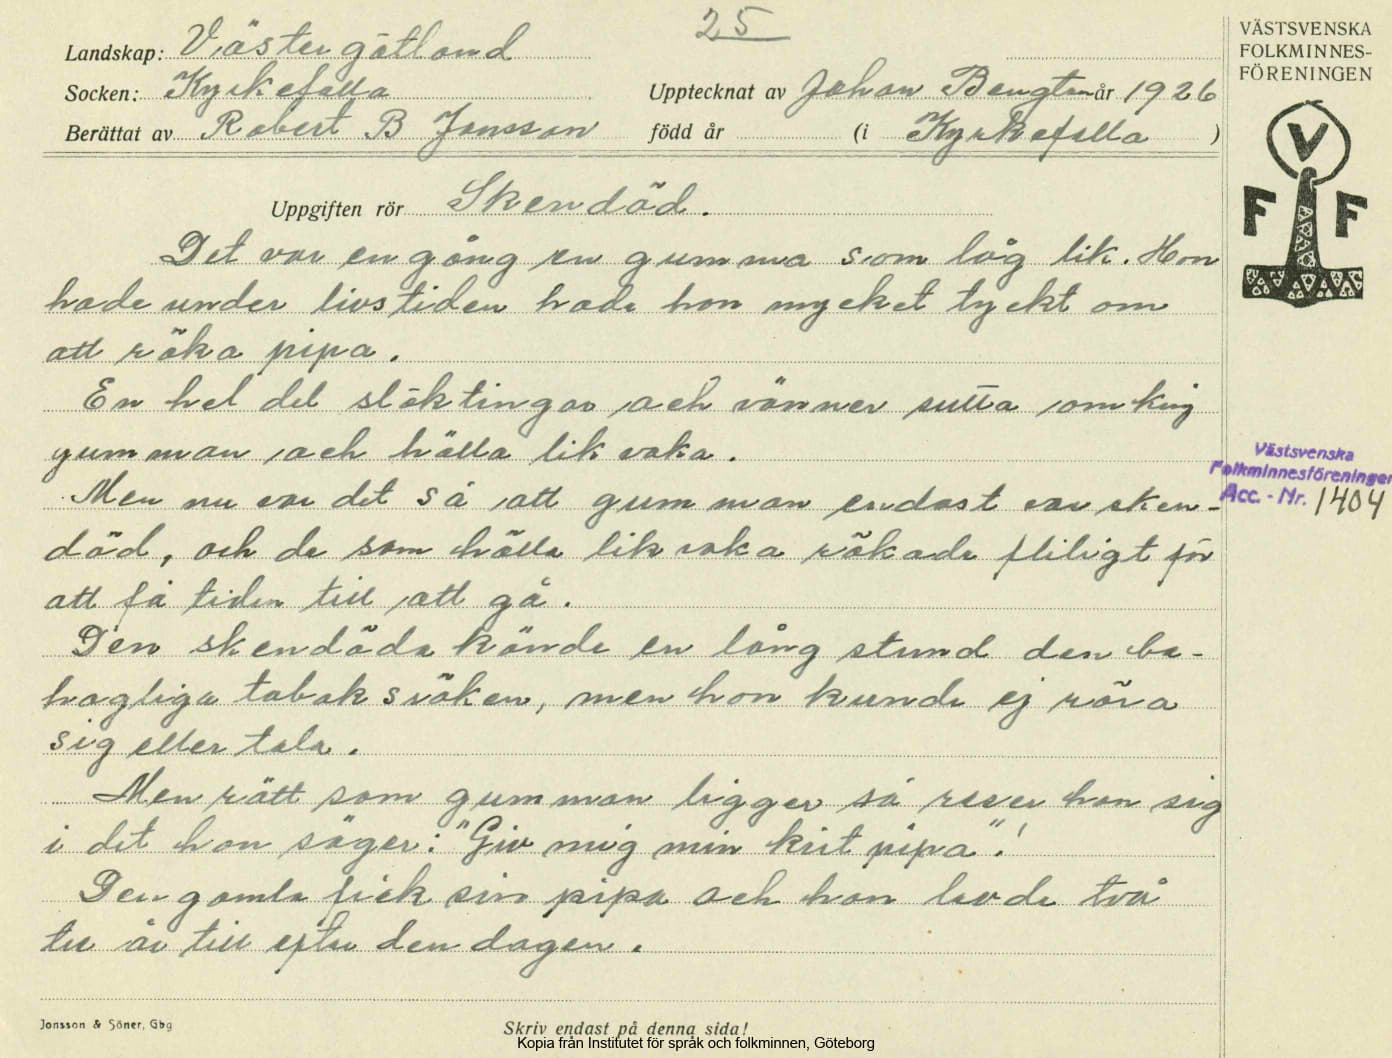 25
Landskap: Västergötland
Socken: Kyrkefalla
Upptecknat av Johan Bengtsson år 1926
Berättat av Robert B Jonsson född år (i Kyrkefalla )
Uppgiften rör Skendöd.
Det var en gång en gumma som låg lik. Hon
hade under livstiden hade hon mycket tyckt om
att röka pipa.
En hel del släktingar och vänner sutta omkring
gumman och hålla likvaka.
Men nu var det så att gumman endast var sken-
död, och de som hålla likvaka rökade flitigt för
att få tiden till att gå.
Den skendöda kände en lång stund den be-
hagliga tobaksröken, men hon kunde ej röra
sig eller tala.
Men rätt som gumman ligger så reser hon sig
i det hon säger: "Giv mig min kritpipa".!
Den gamla fick sin pipa och hon levde två
tre år till efter den dagen.
Jonsson & Söner, Gbg
Skriv endast på denna sida!
Kopia från Institutet för språk och folkminnen, Göteborg
VÄSTSVENSKA
FOLKMINNES-
FÖRENINGEN
V
F F
Västsvenska
Folkminnesföreningen
Acc. - Nr. 1404